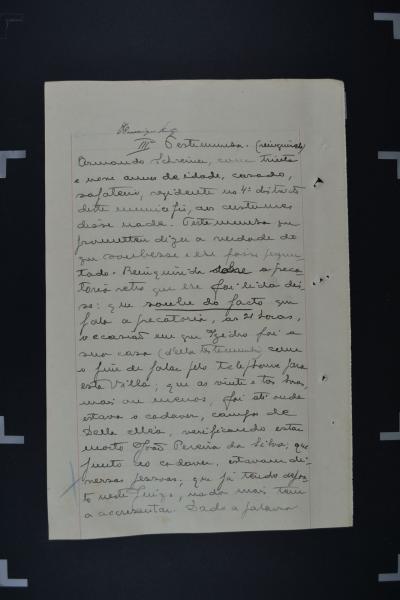 IIIª Testemunha. (reinquirida)
Armando Schreiner, com trinta
e nove annos de idade, casado,
sapateiro, residente no 4º districto
deste municipio, aos costumes
disse nada. Testemunha que
prometteu dizer a verdade do
que soubesse e lhe fosse pergun
tado. Reinquirida sobre a preca
toria retro que lhe foi lida dis
se: que soube do facto que
fala a precatoria, ás 21 horas,
occasião em que foi a
sua casa (della testemunha) com
o fim de falar pelo telephone para
esta Villa; que as vinte e tres horas,
mais ou menos, foi até onde
estava o cadaver, campo de
verificando estar
morto João Pereira da Silva; que
junto ao cadaver estavam di
versas pessoas, que já tendo depos
to neste Juizo, nada mais tem
a accrescentar. Dado a palavra